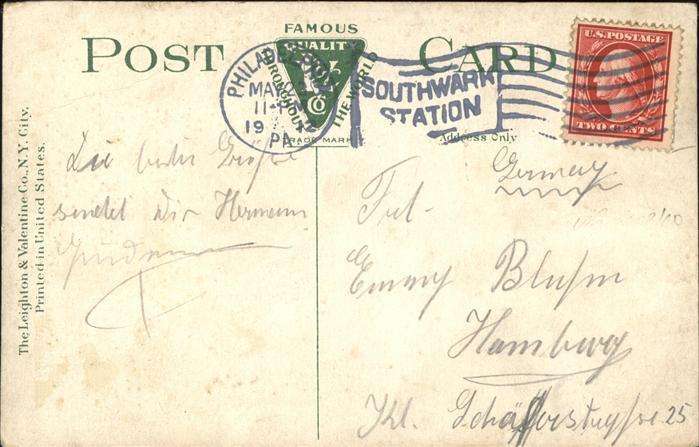 FAMOUS
POST CARD
QUALITY
THE WORLD
CO
TRADE MARK
Address Only
PHILADELPHIA
MAY
11-P
1912
PA.
SOUTHWARK
STATION
U.S. POSTAGE
TWO CENTS
The Leighton & Valentine Co., N.Y. City.
Printed in United States.
Die besten Grüße
sendet Dir Hermann
Germany
Frl.
Emmy Bluhm
Hamburg
Kl. Schäferstrasse 25